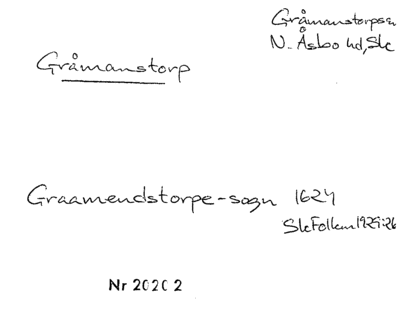 Gråmanstorps sn
N. Åsbo hd, Sk
Gråmanstorp
Graamendstorpe-sogn 1624
Sk Folkm 1929:26
Nr 20202